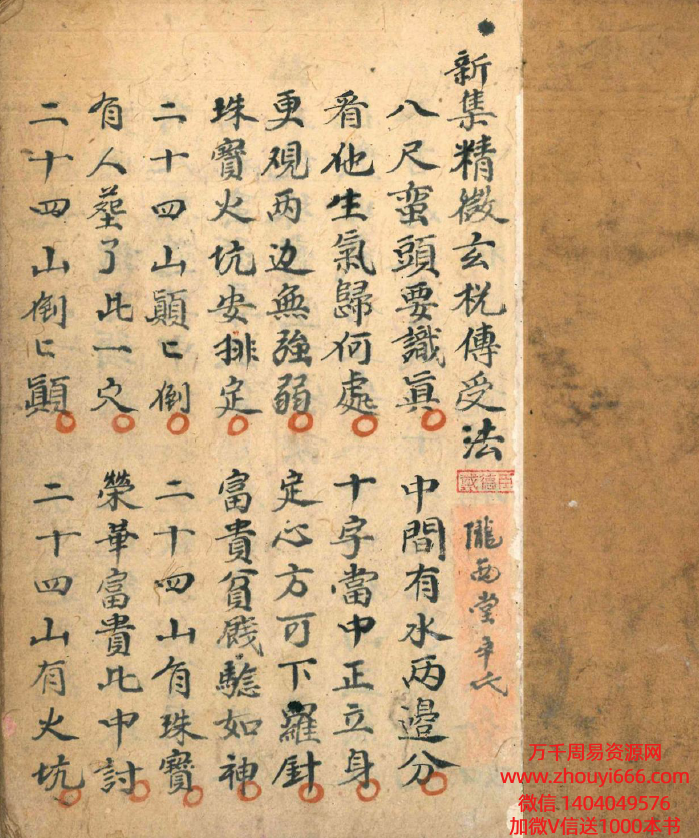 新集精微玄梲傳受法
隴西堂辛氏
八尺蛮頭要識眞 中間有水两邉分
看他生氣歸何處 十字當中正立身
更覌两边無強弱 定心方可下羅針
珠寳火坑安排定 富貴貧賎驗如神
二十四山顚匕倒 二十四山有珠寳
有人塟了此一穴 榮華富貴此中討
二十四山倒匕顚 二十四山有火坑
万千周易资源网
www.zhouyi666.com
微信.1404049576
加微V信送1000本书